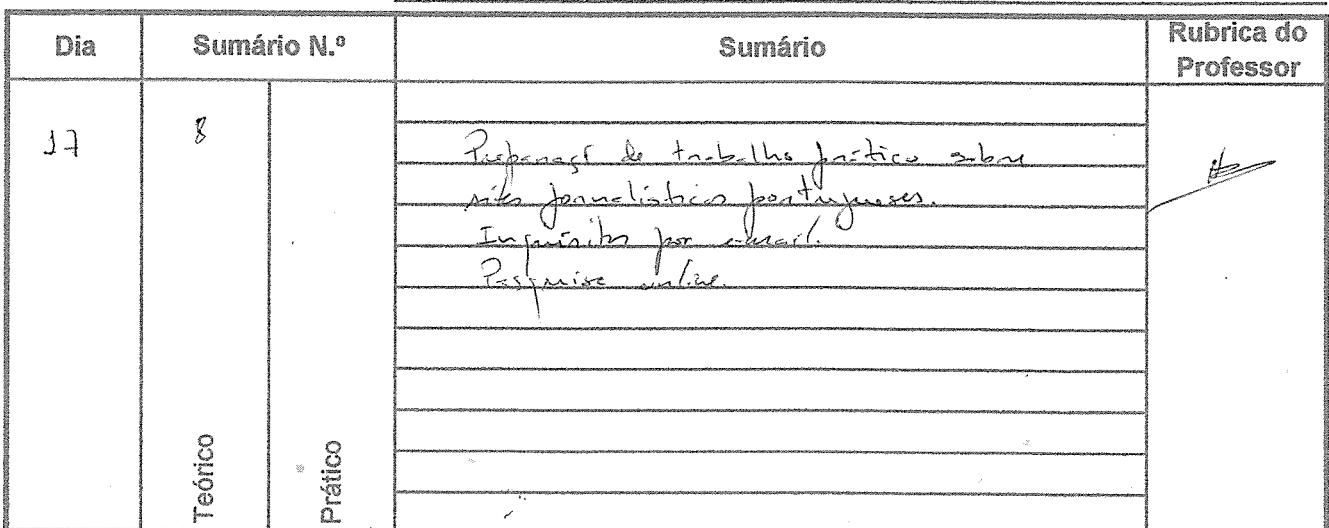 Dia Sumário N.º Sumário Rubrica do Professor
17 8
Preparaçã de trabalho prático sobre
sites jornalísticos portugueses.
Inquéritos por e-mail.
Pesquisa online.
Teórico Prático